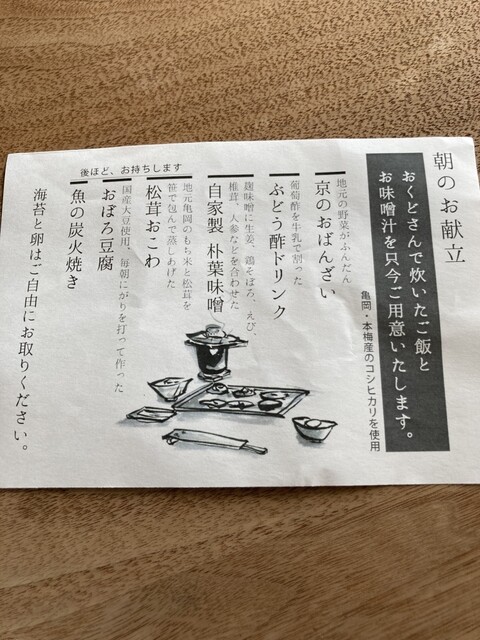 朝のお献立
おくどさんで炊いたご飯と
お味噌汁を只今ご用意いたします。
亀岡・本梅産のコシヒカリを使用
地元の野菜がふんだん
京のおばんざい
葡萄酢を牛乳で割った
ぶどう酢ドリンク
麹味噌に生姜、鶏そぼろ、えび、
椎茸、人参などを合わせた
自家製 朴葉味噌
後ほど、お持ちします
地元亀岡のもち米と松茸を
笹で包んで蒸しあげた
松茸おこわ
国産大豆使用、毎朝にがりを打って作った
おぼろ豆腐
魚の炭火焼き
海苔と卵はご自由にお取りください。